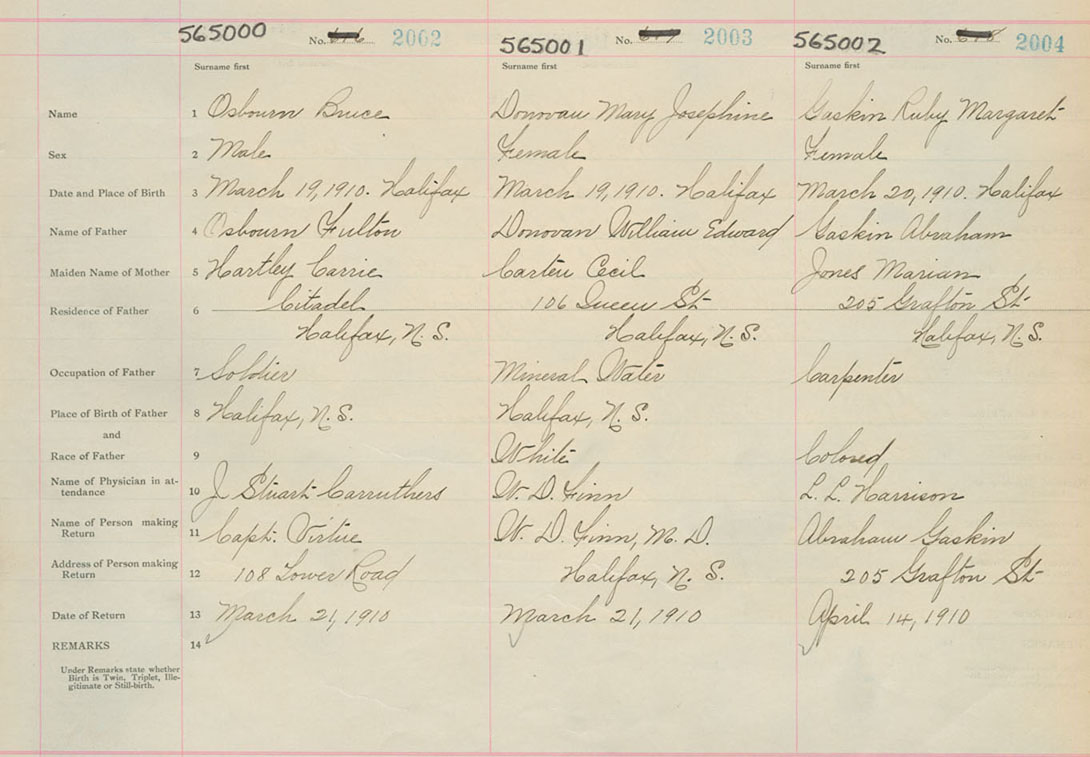 565000 No. 2002 565001 No. 2003 565002 No. 2004
Surname first Surname first Surname first
Name 1 Osbourn Bruce Donovan Mary Josephine Gaskin Ruby Margaret
Sex 2 Male Female Female
Date and Place of Birth 3 March 19, 1910. Halifax March 19, 1910. Halifax March 20, 1910. Halifax
Name of Father 4 Osbourn Fulton Donovan William Edward Gaskin Abraham
Maiden Name of Mother 5 Hartley Carrie Carteu Cecil Jones Marian
Residence of Father 6 Citadel 106 Queen St 205 Grafton St
Halifax, N. S. Halifax, N. S. Halifax, N. S.
Occupation of Father 7 Soldier Mineral Water Carpenter
Place of Birth of Father 8 Halifax, N. S. Halifax, N. S.
and
Race of Father 9 White Colored
Name of Physician in at-
tendance 10 J Stuart Carruthers W. D. Finn L. L. Harrison
Name of Person making
Return 11 Capt. Virtue W. D. Finn, M. D. Abraham Gaskin
Address of Person making
Return 12 108 Lower Road Halifax, N. S. 205 Grafton St
Date of Return 13 March 21, 1910 March 21, 1910 April 14, 1910
REMARKS 14
Under Remarks state whether
Birth is Twin, Triplet, Ille-
gitimate or Still-birth.